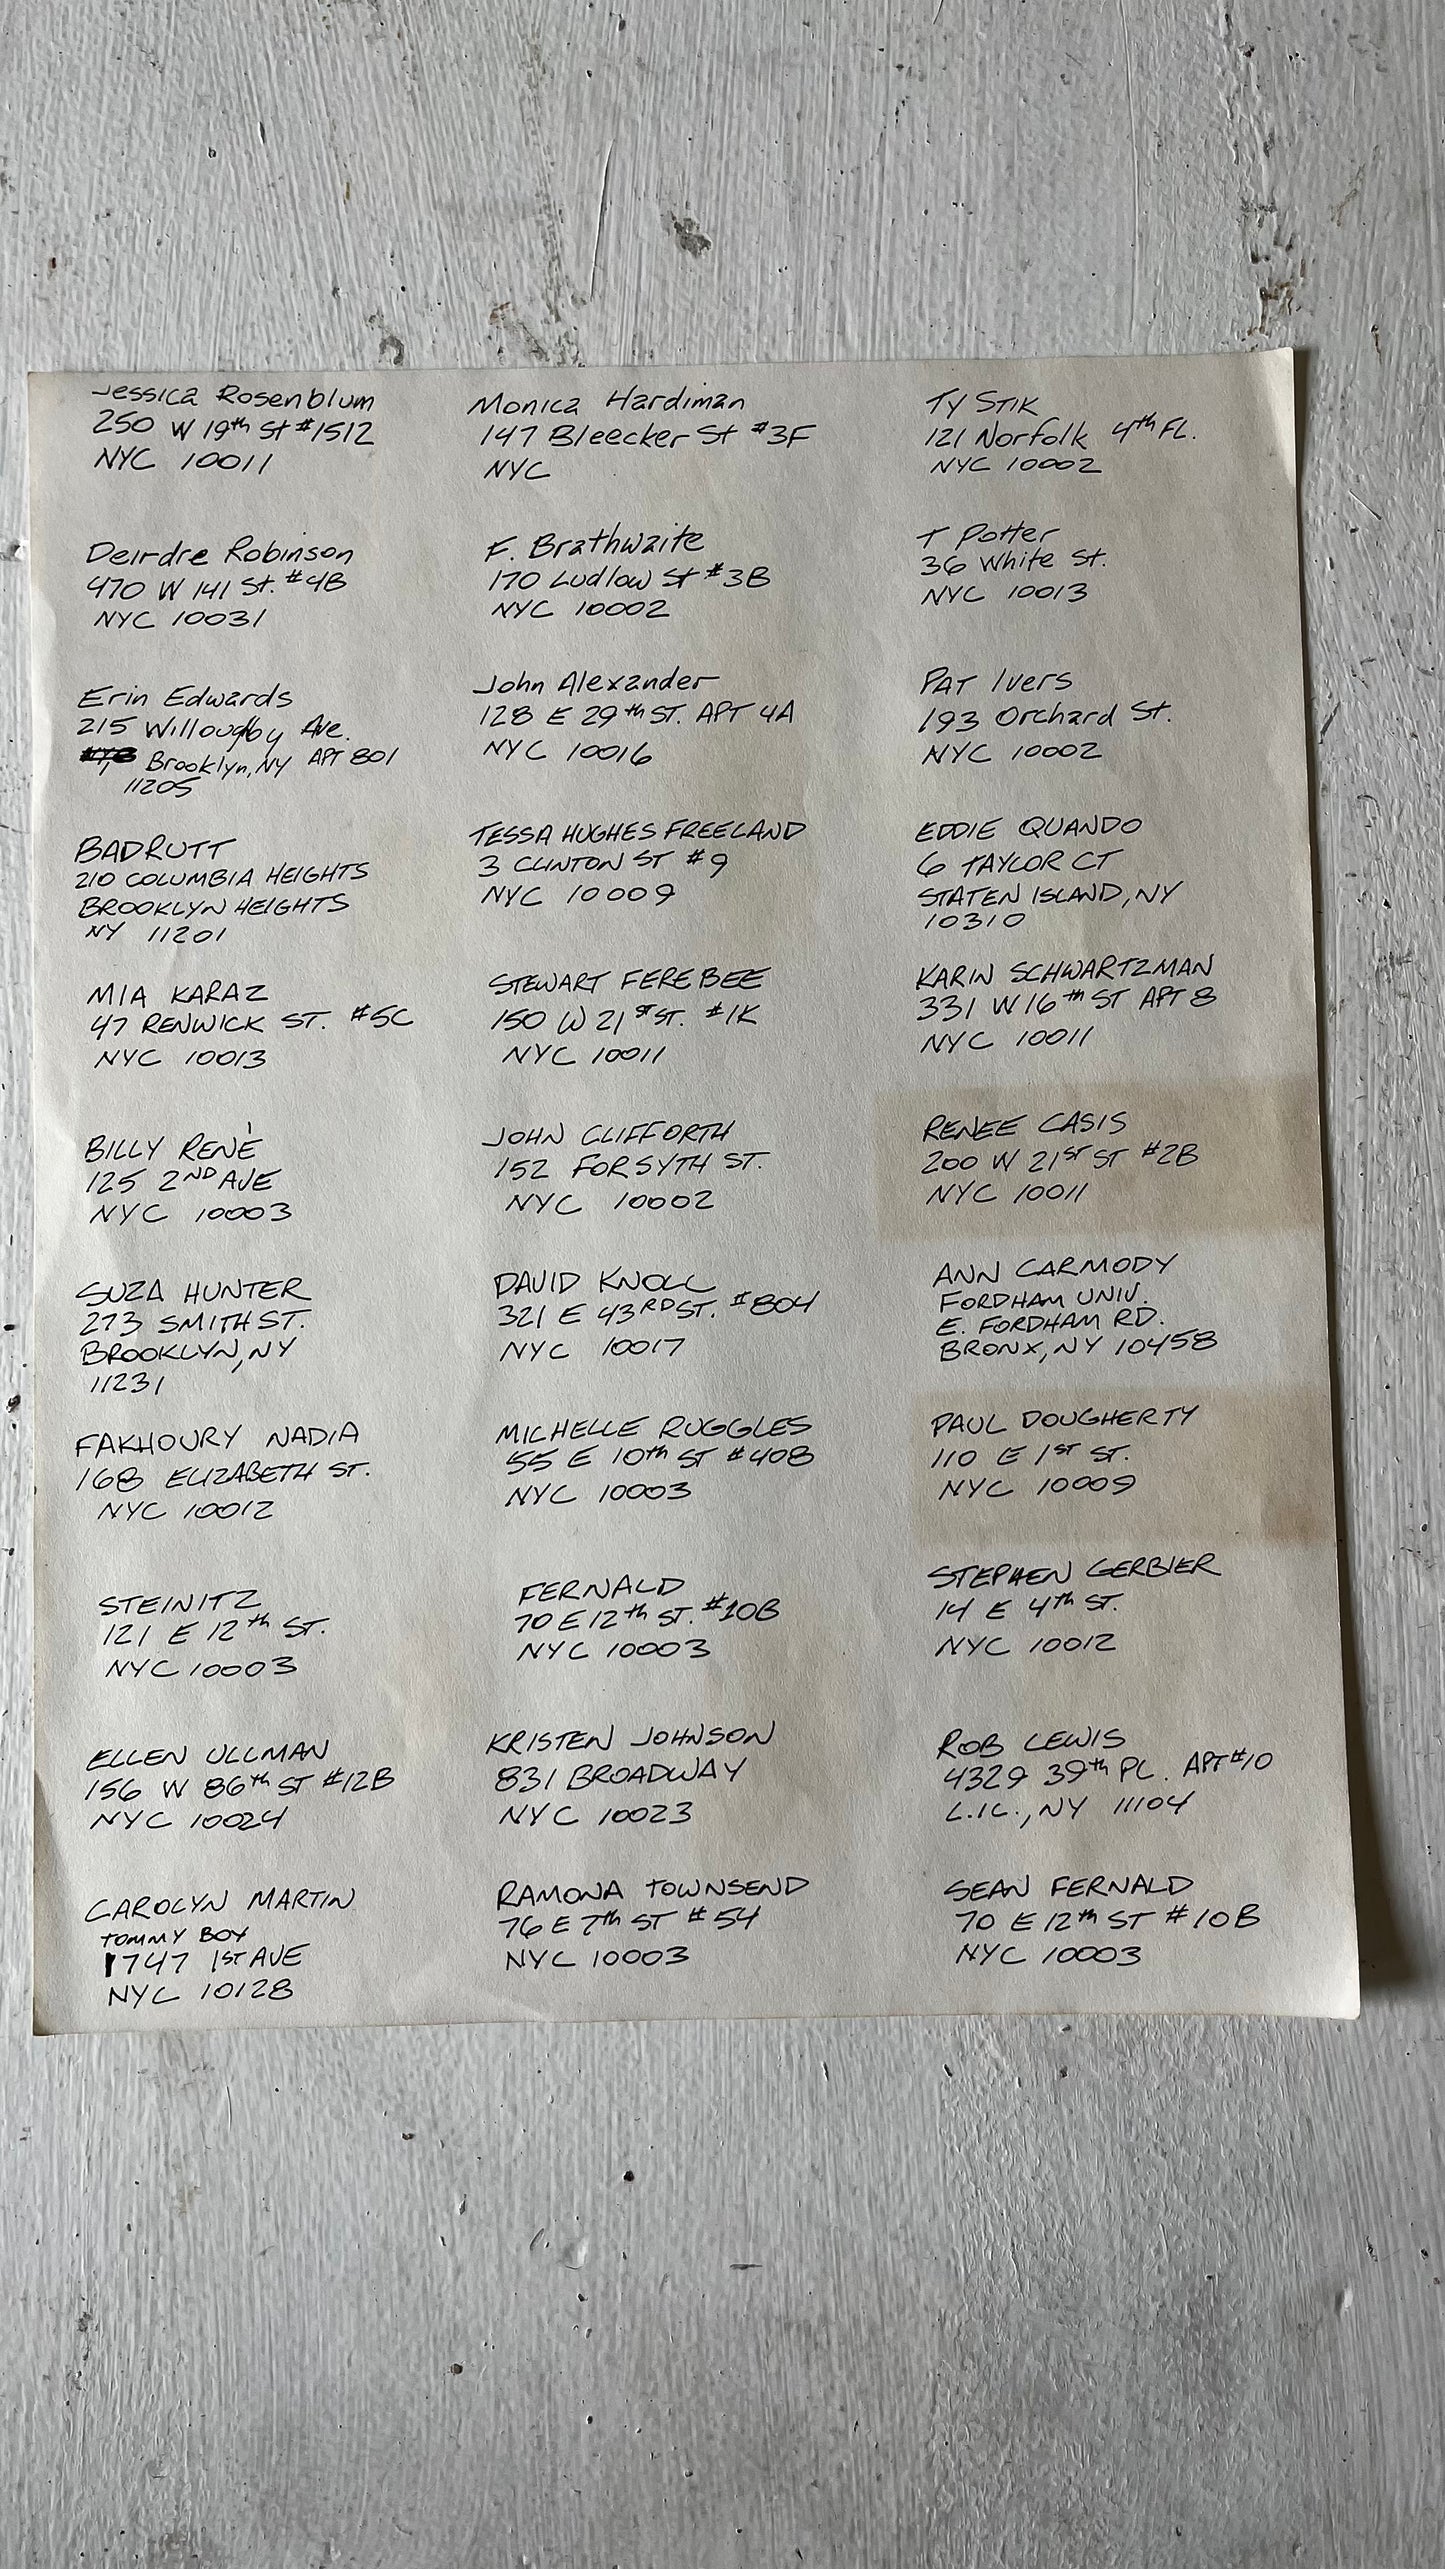 Jessica Rosenblum
250 W 19th St #1512
NYC 10011
Deirdre Robinson
470 W 141 St. #4B
NYC 10031
Erin Edwards
215 Willougby Ave.
Brooklyn, NY APT 801
11205
BADRUTT
210 COLUMBIA HEIGHTS
BROOKLYN HEIGHTS
NY 11201
MIA KARAZ
47 RENWICK ST. #5C
NYC 10013
BILLY RENÉ
125 2ND AVE
NYC 10003
SUZA HUNTER
273 SMITH ST.
BROOKLYN, NY
11231
FAKHOURY NADIA
168 ELIZABETH ST.
NYC 10012
STEINITZ
121 E 12th ST.
NYC 10003
ELLEN ULLMAN
156 W 86th ST #12B
NYC 10024
CAROLYN MARTIN
TOMMY BOY
1747 1ST AVE
NYC 10128
Monica Hardiman
147 Bleecker St #3F
NYC
F. Brathwaite
170 Ludlow St #3B
NYC 10002
John Alexander
128 E 29th ST. APT 4A
NYC 10016
TESSA HUGHES FREELAND
3 CLINTON ST #9
NYC 10009
STEWART FEREBEE
150 W 21ST ST. #1K
NYC 10011
JOHN CLIFFORTH
152 FORSYTH ST.
NYC 10002
DAVID KNOLL
321 E 43RD ST. #804
NYC 10017
MICHELLE RUGGLES
55 E 10th ST #408
NYC 10003
FERNALD
70 E 12th ST. #10B
NYC 10003
KRISTEN JOHNSON
831 BROADWAY
NYC 10023
RAMONA TOWNSEND
76 E 7th ST #54
NYC 10003
TY STIK
121 Norfolk 4th FL.
NYC 10002
T Potter
36 White St.
NYC 10013
PAT Ivers
193 Orchard St.
NYC 10002
EDDIE QUANDO
6 TAYLOR CT
STATEN ISLAND, NY
10310
KARIN SCHWARTZMAN
331 W 16th ST APT 8
NYC 10011
RENEE CASIS
200 W 21ST ST #2B
NYC 10011
ANN CARMODY
FORDHAM UNIV.
E. FORDHAM RD.
BRONX, NY 10458
PAUL DOUGHERTY
110 E 1ST ST.
NYC 10009
STEPHEN GERBIER
14 E 4th ST.
NYC 10012
ROB LEWIS
4329 39th PL. APT #10
L.I.C., NY 11104
SEAN FERNALD
70 E 12th ST #10B
NYC 10003